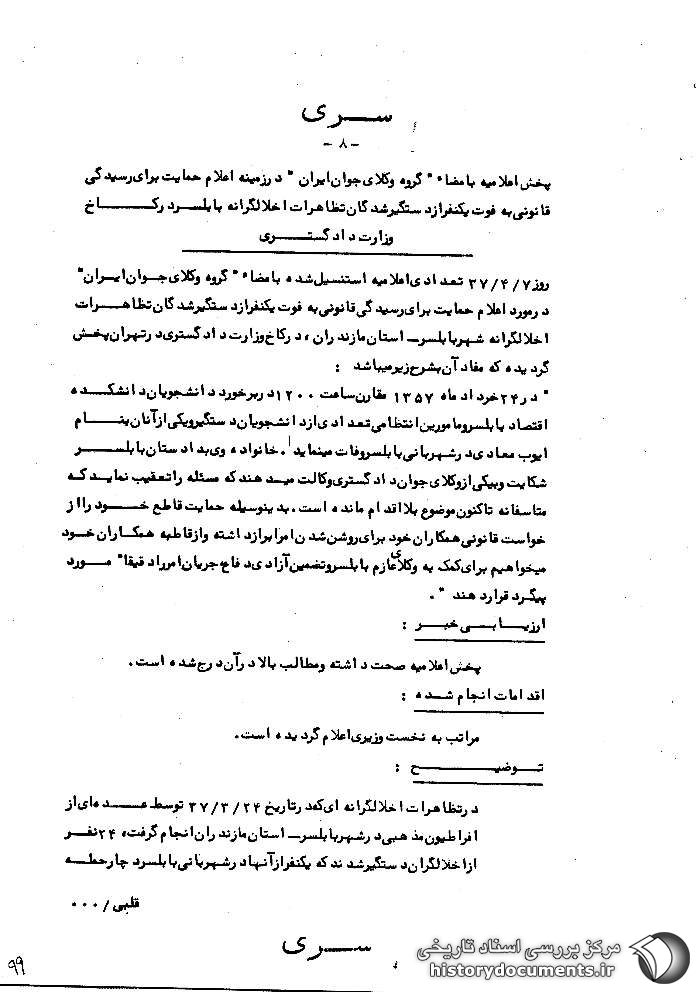 سری
-۸-
پخش اعلامیه بامضاء " گروه وکلای جوان ایران " در زمینه اعلام حمایت برای رسیدگی
قانونی به فوت یکنفر از دستگیر شدگان تظاهرات اخلالگرانه بابلسر در کاخ
وزارت دادگستری
روز ۳۷/۴/۷ تعدادی اعلامیه استنسیل شده بامضاء " گروه وکلای جوان ایران "
در مورد اعلام حمایت برای رسیدگی قانونی به فوت یکنفر از دستگیر شدگان تظاهرات
اخلالگرانه شهر بابلسر - استان مازندران ، در کاخ وزارت دادگستری در تهران پخش
گردیده که مفاد آن بشرح زیر میباشد :
" در ۲۴ خرداد ماه ۱۳۵۷ مقارن ساعت ۱۲۰۰ در برخورد دانشجویان دانشکده
اقتصاد بابلسر و مامورین انتظامی تعدادی از دانشجویان دستگیر و یکی از آنان بنام
ایوب معادی در شهربانی بابلسر وفات مینماید . خانواده وی بدادستان بابلسر
شکایت و بیکی از وکلای جوان دادگستری وکالت میدهند که مسئله را تعقیب نماید که
متاسفانه تاکنون موضوع بلا اقدام مانده است . بدینوسیله حمایت قاطع خود را از
خواست قانونی همکاران خود برای روشن شدن امر ابراز داشته و از قاطبه همکاران خود
میخواهیم برای کمک به وکلای عازم بابلسر و تضمین آزادی دفاع جریان امر را دقیقا" مورد
پیگرد قرار دهند " .
ارزیابی خبر :
پخش اعلامیه صحت داشته و مطالب بالا در آن درج شده است .
اقدامات انجام شده :
مراتب به نخست وزیری اعلام گردیده است .
توضیح :
در تظاهرات اخلالگرانه ای که در تاریخ ۳۷/۳/۲۴ توسط عده ای از
افراطیون مذهبی در شهر بابلسر - استان مازندران انجام گرفت ، ۲۴ نفر
از اخلالگران دستگیر شدند که یکنفر از آنها در شهربانی بابلسر دچار حمله
قلبی / ۰۰۰
سری
۹۹
مرکز بررسی اسناد تاریخی
historydocuments.ir